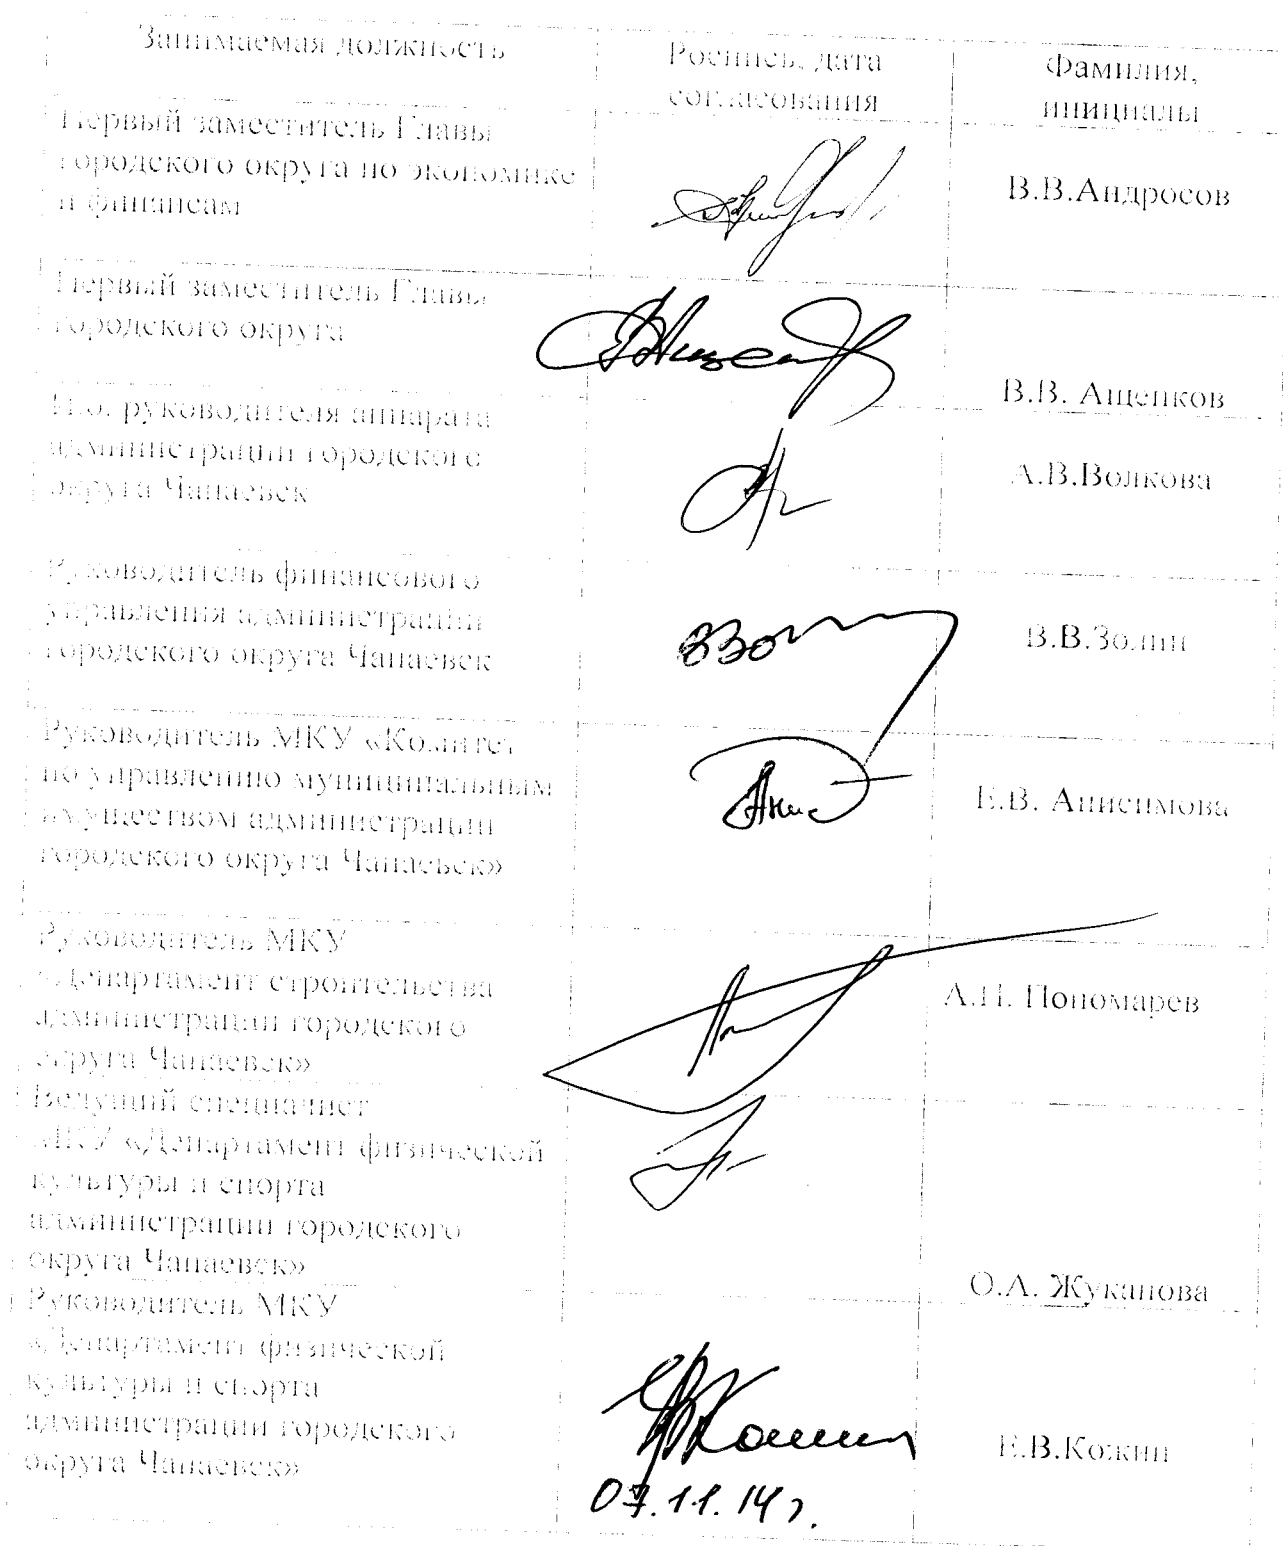 Занимаемая должность
Роспись, дата
согласования
Фамилия,
инициалы
Первый заместитель Главы
городского округа по экономике
и финансам
В.В.Андросов
Первый заместитель Главы
городского округа
В.В. Ащепков
И.о. руководителя аппарата
администрации городского
округа Чапаевск
А.В.Волкова
Руководитель финансового
управления администрации
городского округа Чапаевск
В.В.Золин
Руководитель МКУ «Комитет
по управлению муниципальным
имуществом администрации
городского округа Чапаевск»
Е.В. Анисимова
Руководитель МКУ
«Департамент строительства
администрации городского
округа Чапаевск»
Пономарев
Ведущий специалист
МКУ «Департамент физической
культуры и спорта
администрации городского
округа Чапаевск»
О.А. Жуканова
Руководитель МКУ
«Департамент физической
культуры и спорта
администрации городского
округа Чапаевск»
Е.В.Кожин
07.11.14 г.